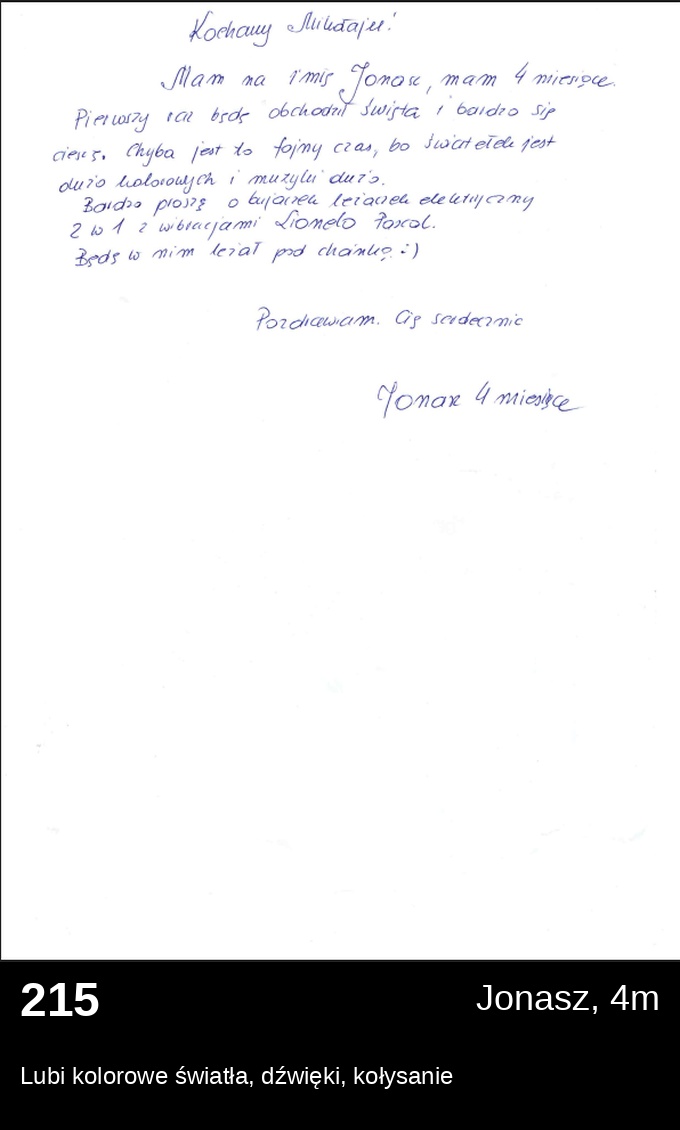 Kochany Mikołaju!
Mam na imię Jonasz, mam 4 miesiące.
Pierwszy raz będę obchodził święta i bardzo się
cieszę. Chyba jest to fajny czas, bo światełek jest
dużo kolorowych i muzyki dużo.
Bardzo proszę o bujaczek leżaczek elektryczny
2 w 1 z wibracjami Lionelo Pascal.
Będę w nim leżał pod choinką :)
Pozdrawiam Cię serdecznie
Jonasz 4 miesiące
215
Jonasz, 4m
Lubi kolorowe światła, dźwięki, kołysanie